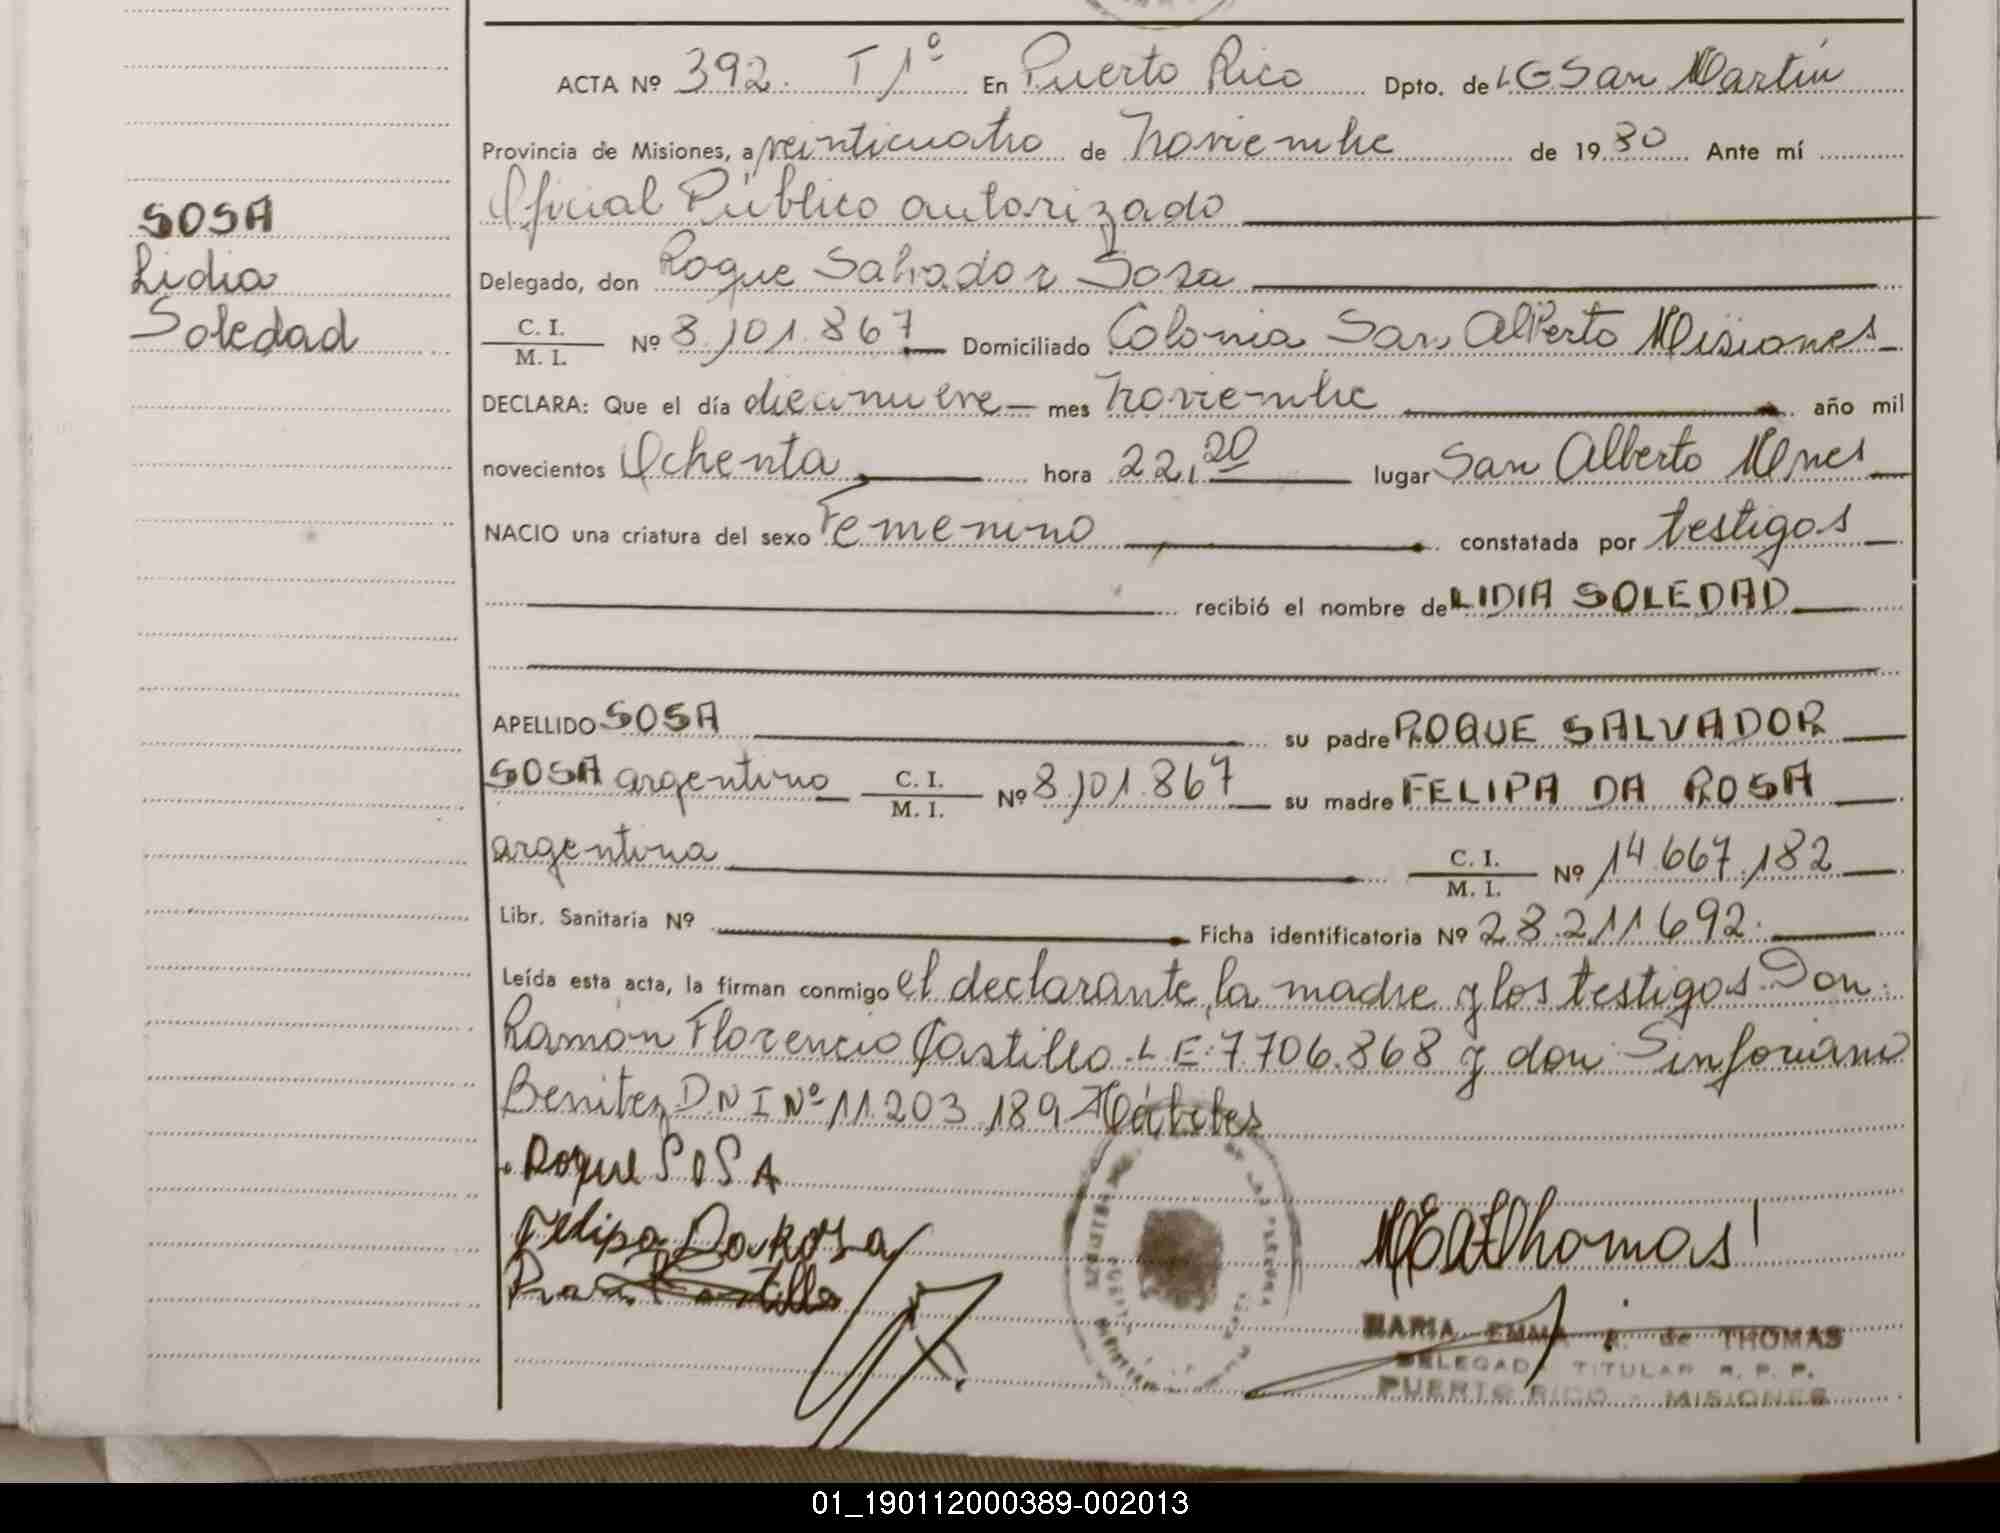 ACTA Nº 392. T 1º En Puerto Rico Dpto. de LG San Martín
Provincia de Misiones, a veinticuatro de noviembre de 1980 Ante mí
Oficial Público autorizado
SOSA
Delegado, don Roque Salvador Sosa
Lidia
C. I. M. I. Nº 8.101.867 Domiciliado Colonia San Alberto Misiones
Soledad
DECLARA: Que el día diecinueve mes noviembre año mil
novecientos Ochenta hora 22,20 lugar San Alberto Mnes
NACIO una criatura del sexo Femenino constatada por testigos
recibió el nombre de LIDIA SOLEDAD
APELLIDO SOSA su padre ROQUE SALVADOR
SOSA argentino C. I. M. I. Nº 8.101.867 su madre FELIPA DA ROSA
argentina C. I. M. I. Nº 14.667.182
Libr. Sanitaria Nº Ficha identificatoria Nº 28.211.692.
Leída esta acta, la firman conmigo el declarante, la madre y los testigos Don
Ramón Florencio Castillo L E: 7.706.868 y don Sinforiano
Benitez D N I Nº 11.203.189 Hábiles
Roque SOSA
Felipa Da Rosa
MEA Thomas
MARIA EMMA A. de THOMAS
DELEGADA TITULAR R. P. P.
PUERTO RICO - MISIONES
01_190112000389-002013